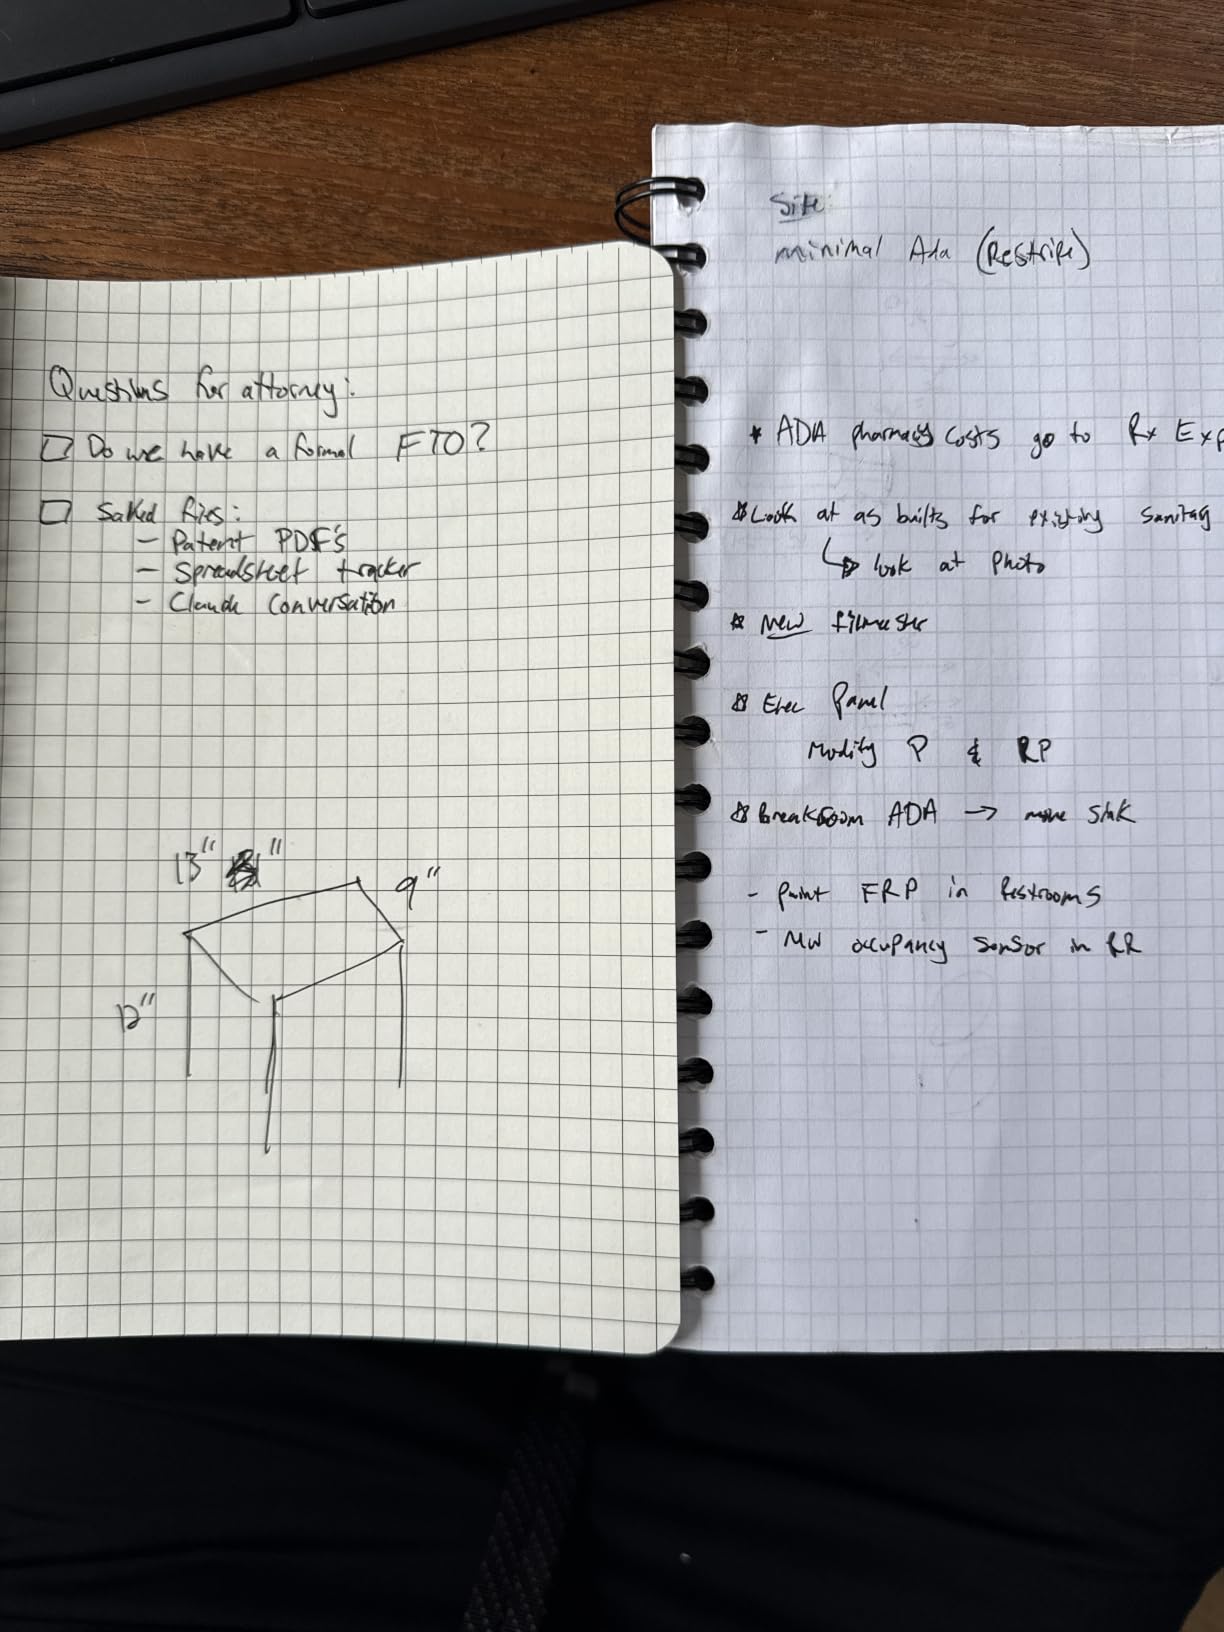 Questions for attorney:
Do we have a formal FTO?
Saved files:
- Patent PDF's
- Spreadsheet tracker
- Claude Conversation
13" "
9"
12"
Site:
minimal Ada (Restripe)
* ADA pharmacy costs go to Rx Exp
* Look at as builts for existing sanitary
↳ look at photo
* New
* Elec Panel
Modify P & RP
* Breakroom ADA → move sink
- paint FRP in Restrooms
- NEW occupancy sensor in RR